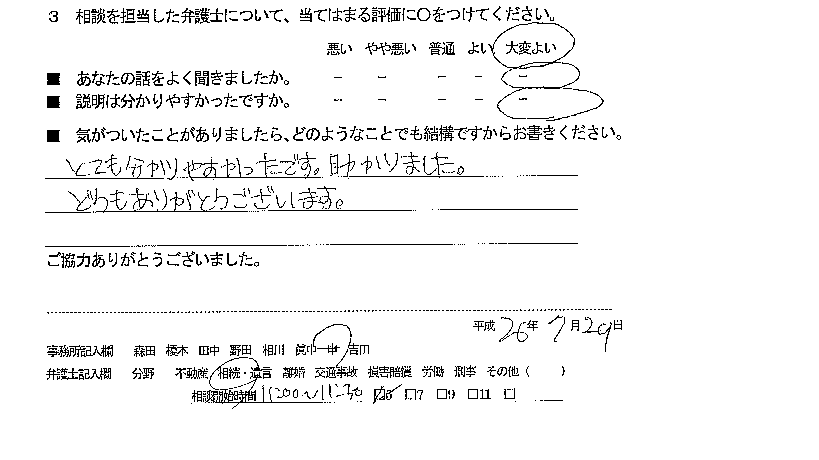 3 相談を担当した弁護士について、当てはまる評価に〇をつけてください。
悪い やや悪い 普通 よい 大変よい
■ あなたの話をよく聞きましたか。 - - - - -
■ 説明は分かりやすかったですか。 - - - - -
■ 気がついたことがありましたら、どのようなことでも結構ですからお書きください。
とても分かりやすかったです。助かりました。
どうもありがとうございます。
ご協力ありがとうございました。
平成 26年 7月29日
事務所記入欄 森田 榎本 田中 野田 相川 眞中 吉田
弁護士記入欄 分野 不動産 相続・遺言 離婚 交通事故 損害賠償 労働 刑事 その他( )
相談開始時間 11:00〜11:30 ☑5 □7 □9 □11 □